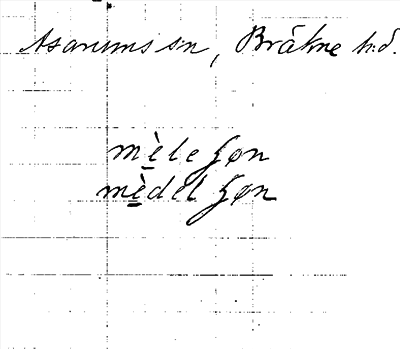 Asarums sn, Bräkne hd.
mèle ʃøn
mèdel ʃøn